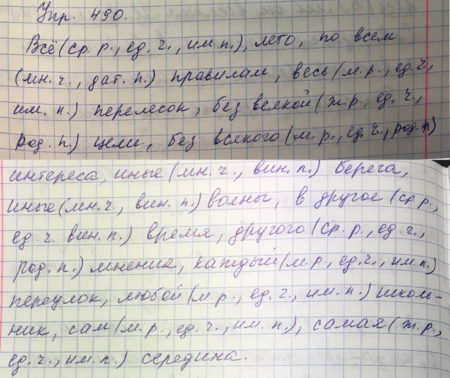 Упр. 490.
Всё (ср. р., ед. ч., им. п.), лето, по всем
(мн. ч., дат. п.) правилам, весь (м. р., ед. ч.,
им. п.) перелесок, без всякой (ж. р., ед. ч.,
род. п.) цели, без всякого (м. р., ед. ч., род. п)
интереса, иные (мн. ч., вин. п.) берега,
иные (мн. ч., вин. п.) волны, в другое (ср р,
ед. ч. вин. п.) время, другого (ср. р., ед. ч.,
род. п.) мнение, каждый (м. р., ед. ч., им. п.)
переулок, любой (м. р., ед. ч., им. п.) школь-
ник, сам (м. р., ед. ч., им. п.), самая (ж. р.,
ед. ч., им. п.) середина.